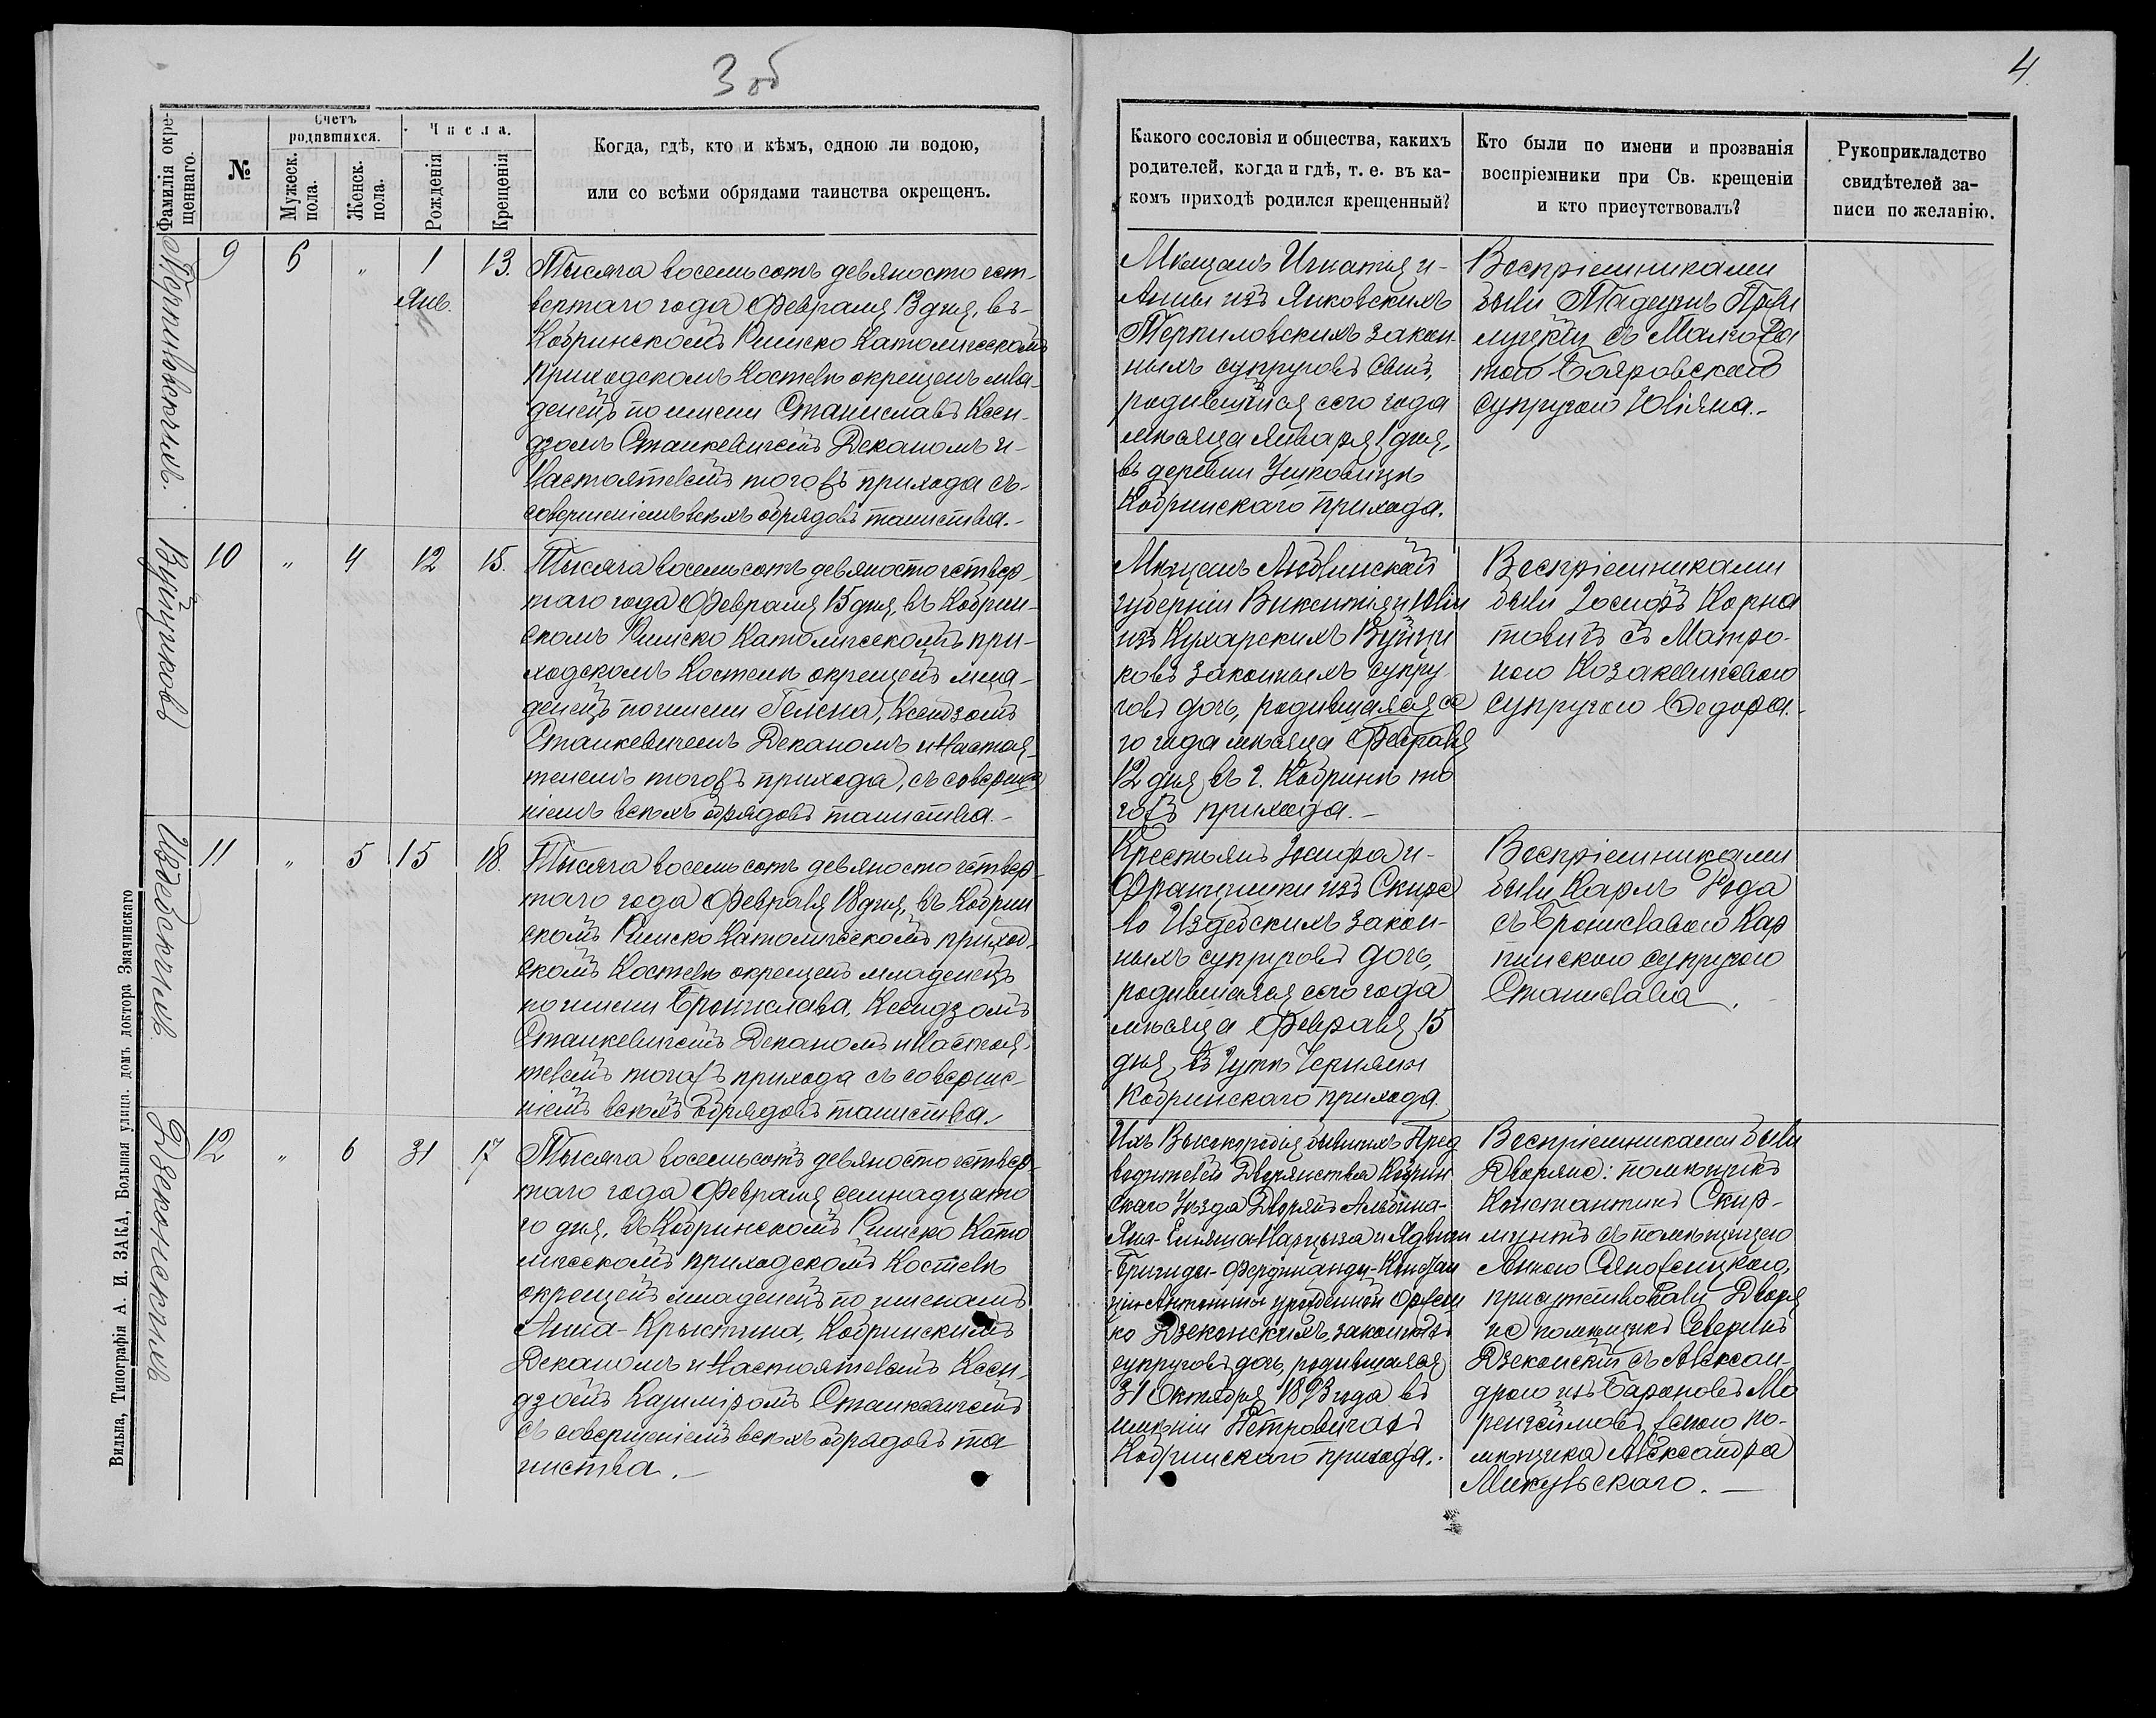 3 об
4.
Фамилія окре-
щеннаго.
№
Счетъ
родившихся.
Мужеск.
пола.
Женск.
пола.
Числа.
Рожденія
Крещенія
Когда, гдѣ, кто и кѣмъ, одною ли водою,
или со всѣми обрядами таинства окрещенъ.
Какого сословія и общества, какихъ
родителей, когда и гдѣ, т. е. въ ка-
комъ приходѣ родился крещенный?
Кто были по имени и прозванія
воспріемники при Св. крещеніи
и кто присутствовалъ?
Рукоприкладство
свидѣтелей за-
писи по желанію.
9 6 „ 1 13.
Янв.
Тысяча восемьсотъ девяносто чет-
вертаго года Февраля 13 дня, въ-
Кобринскомъ Римско Католическомъ
приходскомъ Костелѣ окрещенъ мла-
денецъ по имени Станиславъ Ксен-
дзомъ Станкевичемъ Деканомъ и-
Настоятелемъ тогожъ прихода съ-
совершеніемъ всѣхъ обрядовъ таинства.-
Мѣщанъ Игнатія и-
Анны изъ Янковскихъ
Терпиловскихъ закон-
ныхъ супруговъ сынъ,
родившійся сего года
мѣсяца Января 1 дня,
въ деревни
Кобринскаго прихода.
Воспріемниками
были Тадеушъ
съ
Бояровскою
супругою Юліяна.-
Вуйциковъ
10 „ 4 12 15.
Тысяча восемьсотъ девяносто четвер-
таго года Февраля 15 дня, въ Кобрин-
скомъ Римско Католическомъ при-
ходскомъ Костелѣ окрещенъ мла-
денецъ по имени Гелена, Ксендзомъ
Станкевичемъ Деканомъ и Настоя-
телемъ тогожъ прихода, съ соверше-
ніемъ всѣхъ обрядовъ таинства.-
Мѣщанъ Люблинской
губерніи Викентія и Юліи
изъ Кухарскихъ Вуйци
ковъ законныхъ супру-
говъ дочь, родившаяся се
го года мѣсяца Февраля
12 дня, въ г. Кобринѣ то
гожъ прихода.-
Воспріемниками
были Іосифъ Корна
товичъ съ Матро-
ною Козакевичевою
супругою Федора.-
Издебскихъ
11 „ 5 15 18.
Тысяча восемьсотъ девяносто четвер-
таго года Февраля 18 дня, въ Кобрин
скомъ Римско Католическомъ приход-
скомъ Костелѣ окрещенъ младенецъ
по имени Бронислава, Ксендзомъ
Станкевичемъ Деканомъ и Настоя-
телемъ тогожъ прихода съ соверше-
ніемъ всѣхъ обрядовъ таинства.
Крестьянъ Іосифа и-
Франтишки изъ
Издебскихъ закон-
ныхъ супруговъ дочь,
родившаяся сего года
мѣсяца Февраля 15
дня, въ
Кобринскаго прихода.
Воспріемниками
были Карлъ
съ Брониславою Кар
пинскою супругою
Станислава.
Дзеконскихъ
12 „ 6 31 17
Тысяча восемьсотъ девяносто четвер-
таго года Февраля семнадцато
го дня, въ Кобринскомъ Римско Като
лическомъ приходскомъ Костелѣ
окрещенъ младенецъ по именамъ
Анна-Крыстина, Кобринскимъ
Деканомъ и Настоятелемъ Ксен-
дзомъ Казиміромъ Станкевичемъ
съ совершеніемъ всѣхъ обрядовъ та
инства.-
Ихъ Высокородія бывшихъ Пред
водителей Дворянства Кобрин
скаго Уѣзда Дворянъ Альбина-
Яна- и Ядвиги
-Бригиды-Фердинанды-
Антонины урожденной Ожеш
ко Дзеконскихъ, законныхъ
супруговъ дочь, родившаяся
31 Октября 1893 года въ
имѣніи Петровичахъ
Кобринскаго прихода.-
Воспріемниками были
Дворяне: помѣщикъ
Константинъ Скир-
мунтъ съ помѣщицею
Анною
присутствовали Дворя
не помѣщикъ Северинъ
Дзеконскій съ Алексан-
дрою изъ Бароновъ
женою по-
мѣщика Александра
Микульскаго.-
Вильна, Типографія А. И. ЗАКА, Большая улица. домъ доктора Змачинскаго